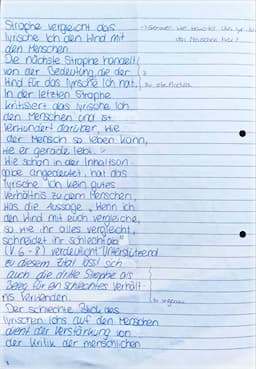 Strophe vergleicht das
lyrische Ich den Wind mit
den Menschen
Die nächste Strophe handelt
von der Bedeutung die der
Wind für das lyrische Ich hat.
In der letzten Strophe
kritisiert das lyrische Ich
den Menschen und ist
verwundert darüber, wie
der Mensch so leben kann,
wie er gerade lebt.
Wie schon in der Inhaltsan-
gabe angedeutet, hat das
lyrische Ich kein gutes
Verhältnis zu dem Menschen.
Was die Aussage „Wenn ich
den Wind mit euch vergleiche,
so wie ihr alles vergleicht,
schneidet ihr schlecht ab"
(V 6-8) verdeutlicht. Unterstützend
zu diesem Zitat lässt sich
auch die dritte Strophe als
Beleg für ein schlechtes Verhält-
nis verwenden.
Der schlechte Blick des
lyrischen Ichs auf den Menschen
dient der Verstärkung von
der Kritik der menschlichen
den Menschen hat?
zu ungenau